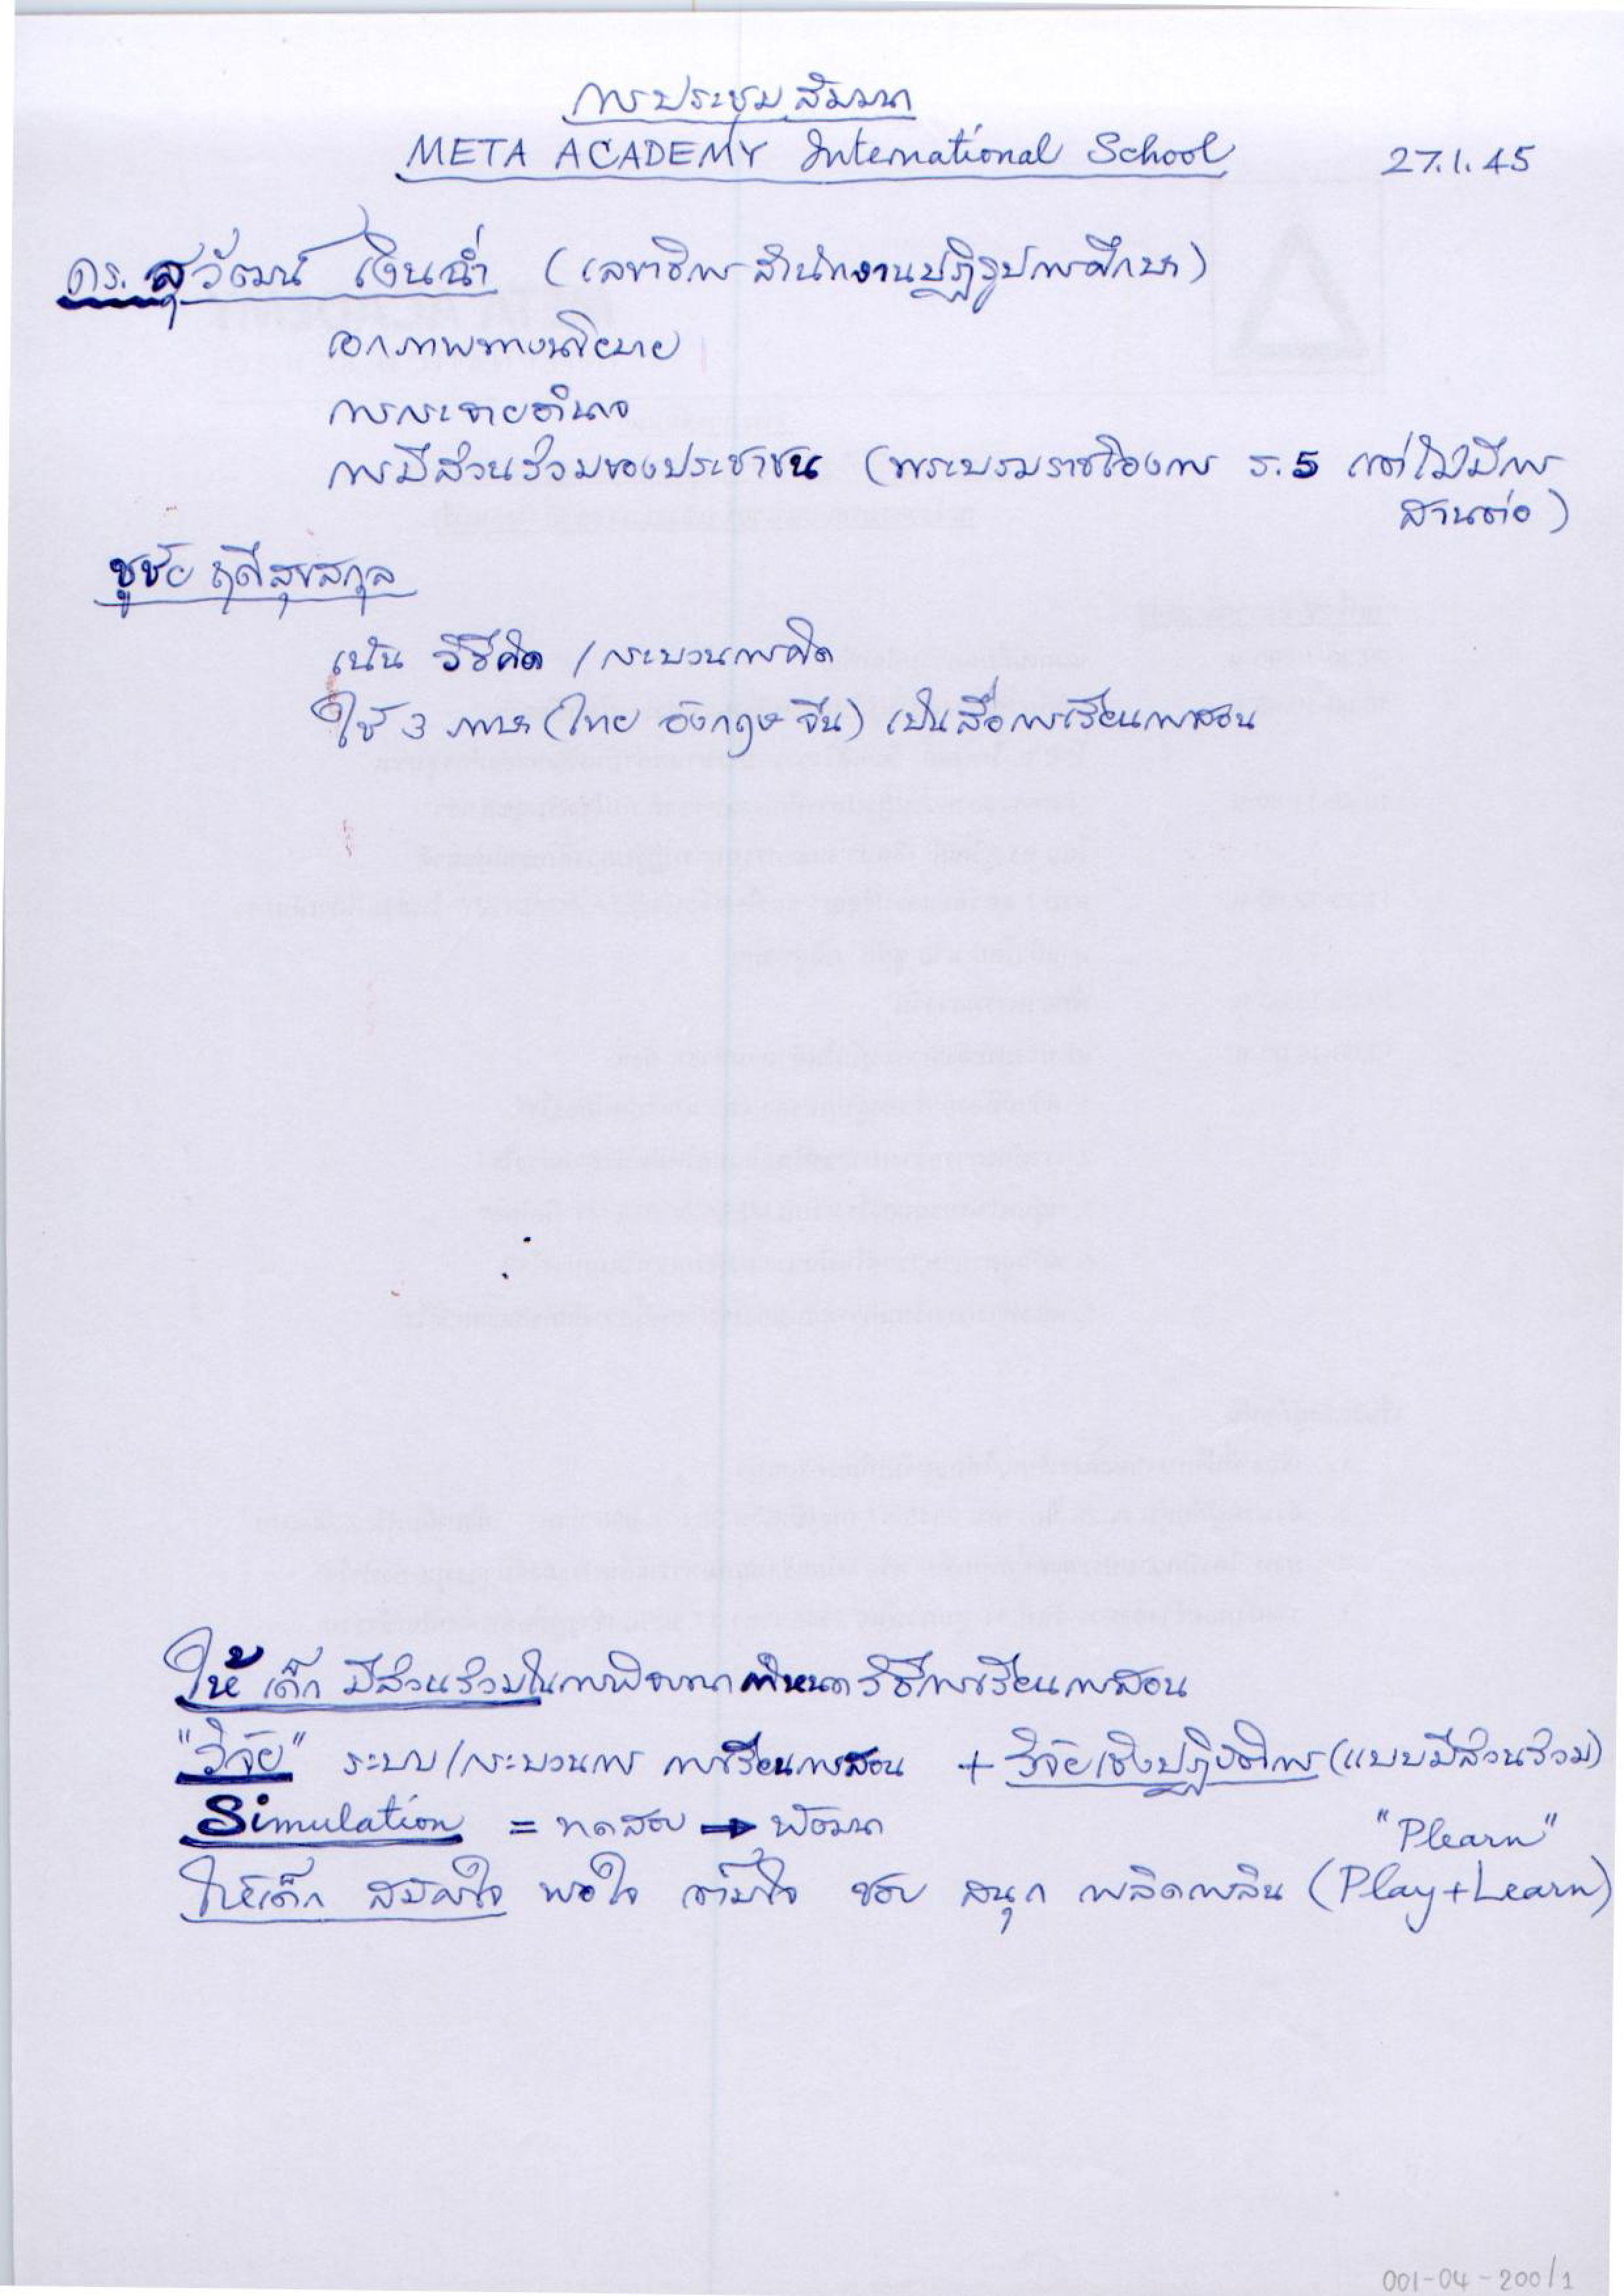 การประชุมสัมมนา
META ACADEMY International School 27.1.45
ดร. สุวัฒน์ เงินฉ่ำ (เลขาธิการสำนักงานปฏิรูปการศึกษา)
เอกภาพทางนโยบาย
การกระจายอำนาจ
การมีส่วนร่วมของประชาชน (พระบรมราชโองการ ร.5 แต่ไม่มีการ
สานต่อ)
ชูชัย ฤดีสุขสกุล
เน้น วิธีคิด / กระบวนการคิด
ใช้ 3 ภาษา (ไทย อังกฤษ จีน) เป็นสื่อการเรียนการสอน
ให้ เด็ก มีส่วนร่วมในการพิจารณากำหนดวิธีการเรียนการสอน
"วิจัย" ระบบ/กระบวนการ การเรียนการสอน + วิจัยเชิงปฏิบัติการ (แบบมีส่วนร่วม)
Simulation = ทดสอบ → พัฒนา "Plearn"
ให้เด็ก สมัครใจ พอใจ เต็มใจ ชอบ สนุก เพลิดเพลิน (Play+Learn)
001-04-200/1